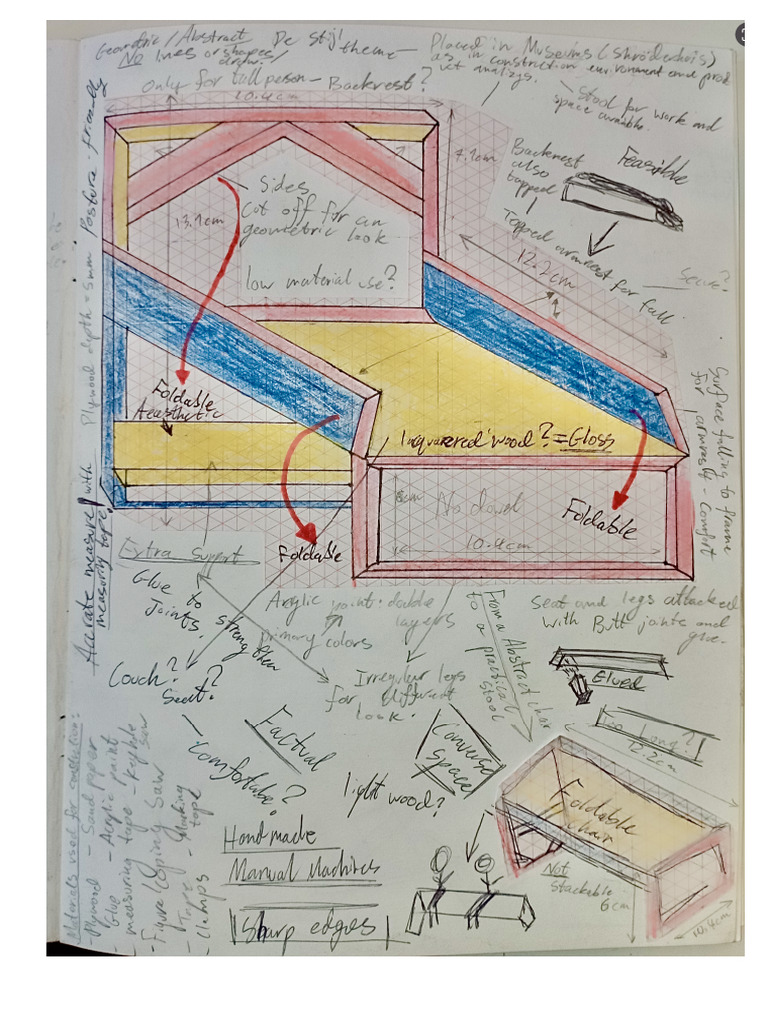 Geometric / Abstract De stijl theme
No lines or shapes
Placed in Museums (Shröderhuis)
as in construction environment and prod
Only for tall person - Backrest?
10.4cm
Stool for work and
space available.
Feasible
Backrest
also
tapped
7.1cm
Postura-friendly
Plywood depth = 5mm
Acurate measure with
measuring tape.
Sides
Cut off for an
geometric look
13.1cm
low material use?
Tapped armrest for fall
Secure?
12.2cm
Foldable
Aeasthetic
laquarered wood? = Gloss
Surface falling to frame
for comversly - Comfort
6cm
No dowel
Foldable
10.4cm
Extra support
Foldable
Glue to strengthen
Joints.
Arylic paint: double
layers
primary colors
From a Abstract chair
to a practical
stool
Seat and legs attacked
with Butt jointe and
glue.
Glued
Couch?
Seat?
Irregular legs
for different
look.
Comfortabe?
Factual
light wood?
Converse
space
Too Long?
12.2cm
Foldable
chair
Not
Stackable
6cm
10.4cm
Handmade
Manual Machines
Sharp edges
Materials used for constuction:
- Plywood - Sand paper
- Glue - Acrylic paint
- measuring tape
- Coping Saw
- Tape - Masking
tape
- Clamps